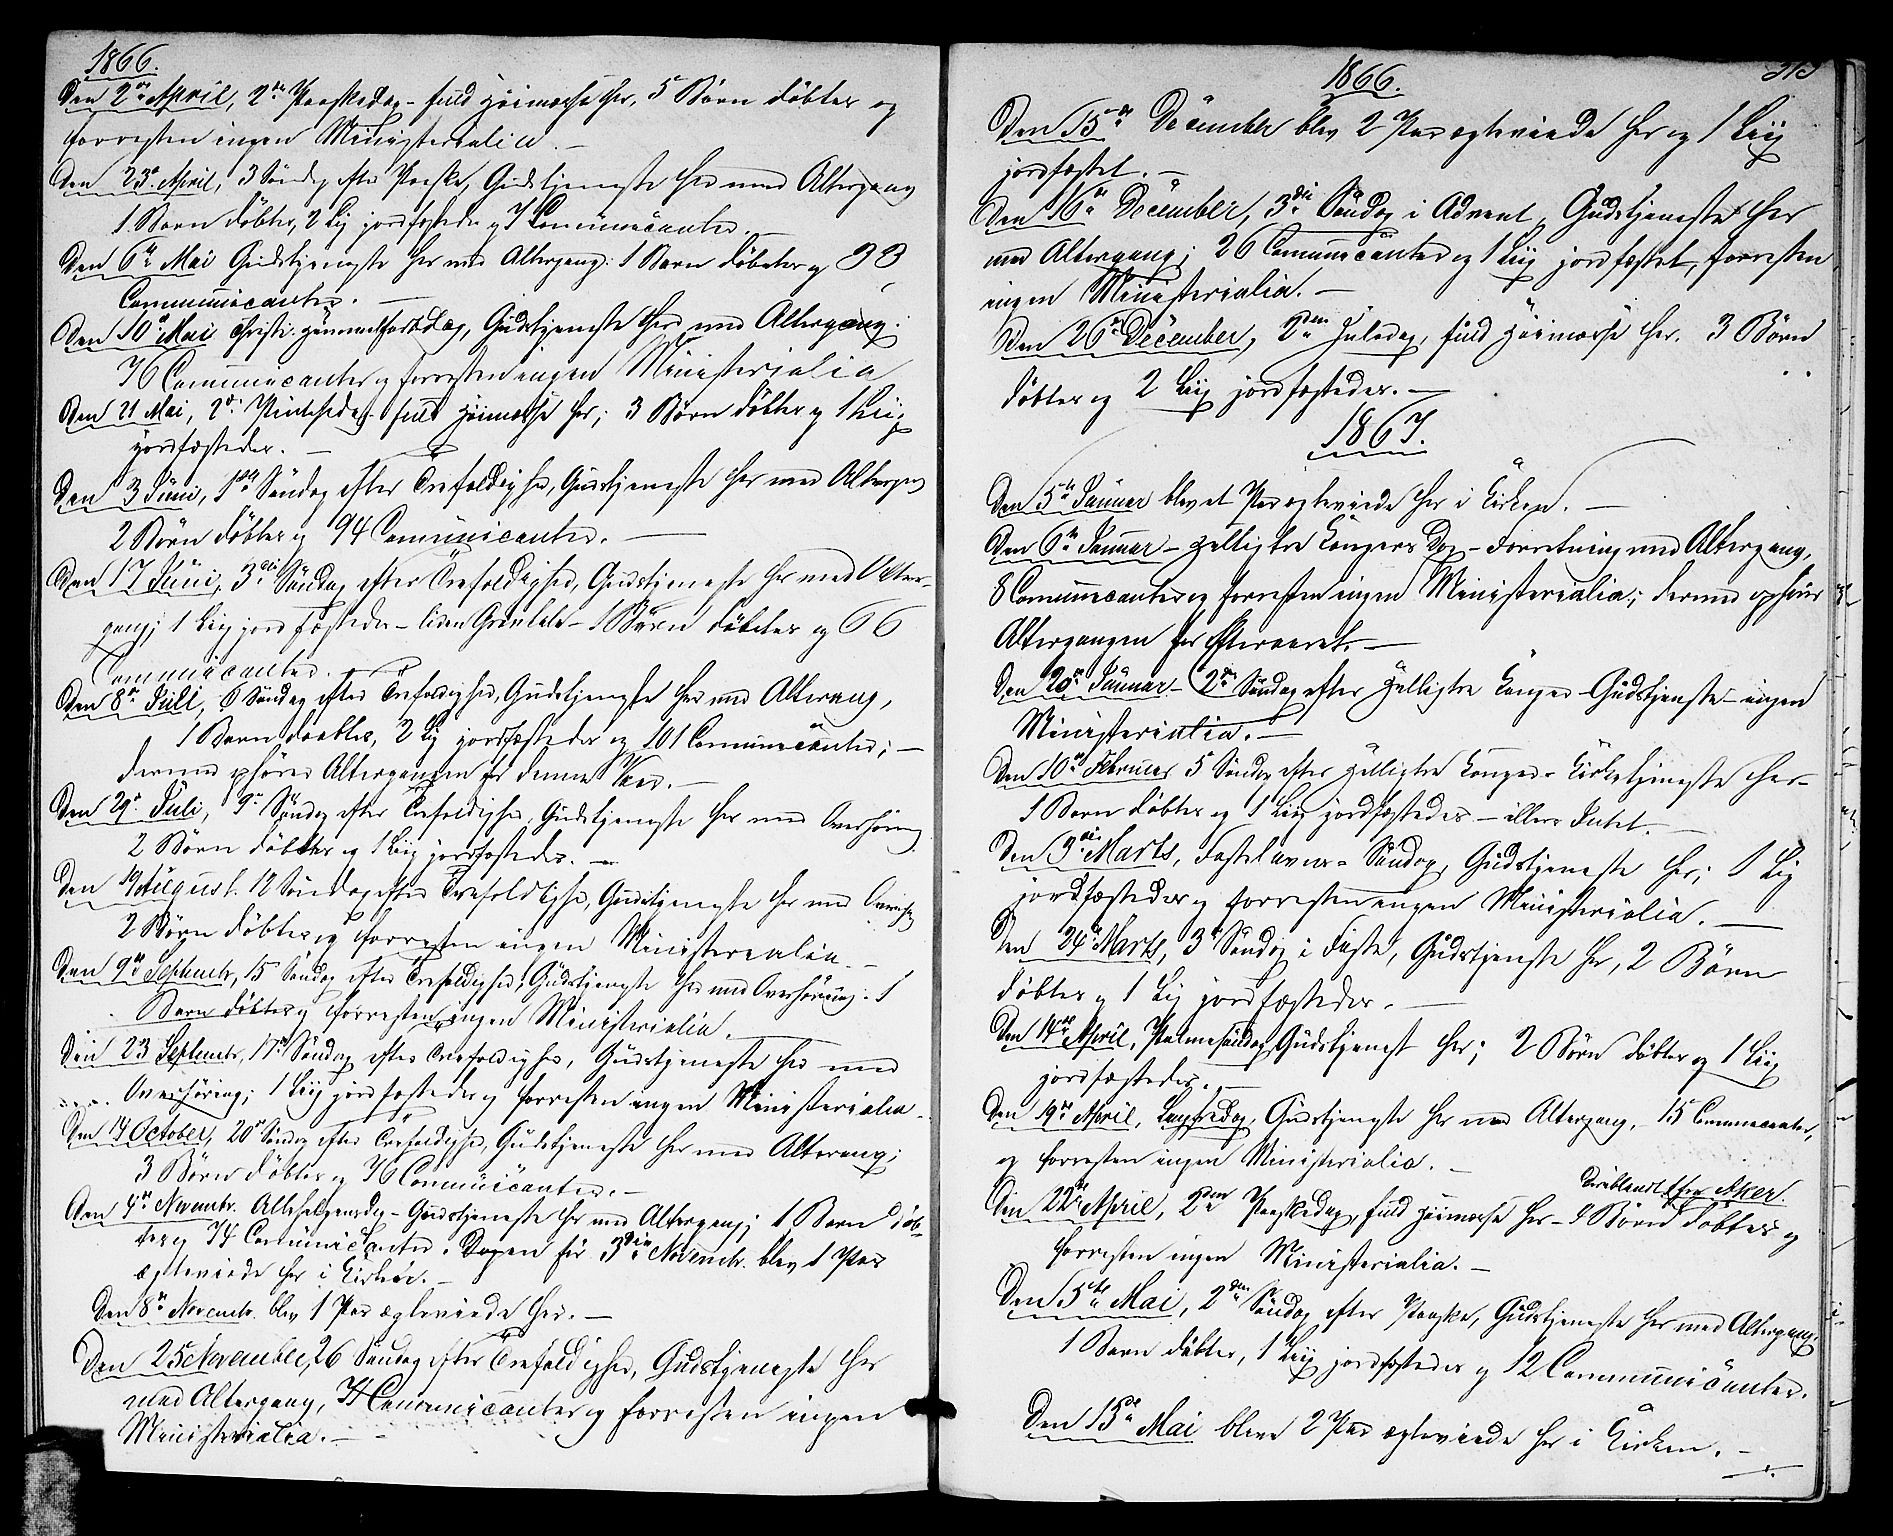 1866.
Den 2den April, 2den Paaskedag - fuld Höimæsse her, 5 Börn döbtes og
forresten ingen Ministerialia. -
Den 23de April, 3 Söndag efter Paaske, Gudstjeneste her med Altergang
1 Barn döbtes, 2 Lig jordfæstedes og 7 Communicanter. -
Den 6te Mai Gudstjeneste her med Altergang: 1 Barn döbtes og 33
Communicanter. -
Den 10de Mai Christi Himmelfartsdag, Gudstjeneste her med Altergang:
76 Communicanter og forresten ingen Ministerialia
Den 21 Mai, 2den Pintsedag - fuld Höimæsse her; 3 Börn döbtes og 1 Liig
jordfæstedes. -
Den 3 Juni, 1ste Söndag efter Trefoldighed, Gudstjeneste her med Altergang
2 Börn döbtes og 94 Comunicanter. -
Den 17 Juni, 3die Söndag efter Trefoldighed, Gudstjeneste her med Alter-
gang; 1 Liig jordfæstedes - 1 Barn döbtes og 66
Communicanter.
Den 8de Juli, 6 Söndag efter Trefoldighed, Gudstjeneste her med Alterang,
1 Barn döbtes, 2 Lig jordfæstedes og 101 Comunicanter; -
dermed ophörer Altergangen for denne Vaar. -
Den 29de Juli, 9de Söndag efter Trefoldighed, Gudstjeneste her med Overhöring
2 Börn döbtes og 1 Liig jordfæstedes. -
Den 19 August. 12 Söndag efter Trefoldighed, Gudstjeneste her med Overhöring
2 Börn döbtes og forresten ingen Ministerialia. -
Den 9de Septembr, 15 Söndag efter Trefoldighed, Gudstjeneste her med Overhöring: 1
Barn döbtes og forresten ingen Ministerialia. -
Den 23 Septembr, 17de Söndag efter Trefoldighed, Gudstjeneste her med
Overhöring; 1 Liig jordfæstedes og forresten ingen Ministerialia. -
Den 14 October, 20de Söndag efter Trefoldighed, Gudstjeneste her med Alterang;
3 Börn döbtes og 76 Communicanter. -
Den 4de Novembr. Allehelgensdag - Gudstjeneste her med Altergang; 1 Barn döb-
tes og 74 Comunicanter. Dagen för 3die Novembr. blev 1 Par
ægteviede her i Kirken. -
Den 8de Novembr. blev 1 Par ægteviede her. -
Den 25 November, 26 Söndag efter Trefoldighed, Gudstjeneste her
med Altergang, 74 Communicanter og forresten ingen
Ministerialia. -
1866.
Den 15de December blev 2 Par ægteviede her og 1 Liig
jordfæstet. -
Den 16de December, 3die Söndag i Advent, Gudstjeneste her
med Altergang; 26 Comunicanter og 1 Liig jordfæstet, forresten
ingen Ministerialia. -
Den 26de December, 2den Juledag, fuld Höimæsse her. 3 Börn
döbtes og 2 Liig jordfæstedes. -
1867.
Den 5te Januar blev et Par ægteviede her i Kirken. -
Den 6te Januar - Helligtre Kongers Dag - Forretning med Altergang,
8 Comunicanter og forresten ingen Ministerialia; dermed ophörer
Altergangen for Efteraaret. -
Den 20de Januar - 2den Söndag efter Helligtre Konger - Gudstjeneste - ingen
Ministerialia. -
Den 10de Februar 5 Söndag efter Helligtre Konger - Kirketjeneste her -
1 Barn döbtes og 1 Liig jordfæstedes - ellers Intet. -
Den 3die Marts, Fastelavns-Söndag, Gudstjeneste her; 1 Lig
jordfæstedes og forresten ingen Ministerialia. -
Den 24de Marts, 3die Söndag i Faste, Gudstjenste her, 2 Börn
döbtes og 1 Lig jordfæstedes. -
Den 14de April, Palmesöndag, Gudstjenest her; 2 Börn döbtes og 1 Liig
jordfæstedes. -
Den 19de April, Langfredag, Gudstjeneste her med Altergang, - 15 Communicanter,
og forresten ingen Ministerialia. -
deriblandt 1 fra Aker.
Den 22de April, 2den Paaskedag, fuld Höimæsse her - 4 Börn döbtes og
forresten ingen Ministerialia. -
Den 5te Mai, 2den Söndag efter Paaske, Gudstjeneste her med Altergang.
1 Barn döbtes, 1 Liig jordfæstedes og 12 Communicanter.
Den 13de Mai bleve 2 Par ægteviede her i Kirken. -